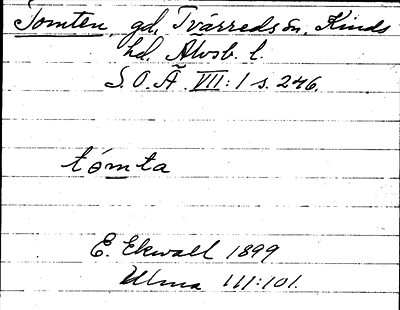 Tomten, gd, Tvärreds sn, Kinds
hd, Älvsb. l.
S.O.Ä. VII:1 s. 246.
tómta
E. Ekwall 1899
Ulma 111:101.